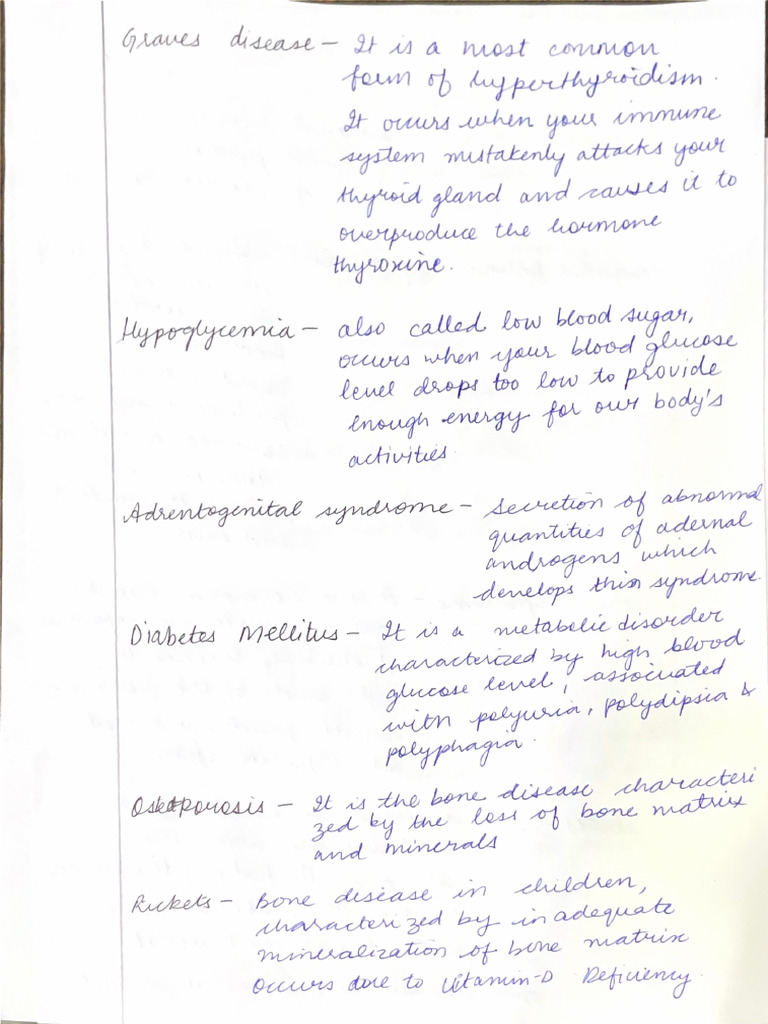 Graves disease - It is a most common
form of hyperthyroidism.
It occurs when your immune
system mistakenly attacks your
thyroid gland and causes it to
overproduce the hormone
thyroxine.
Hypoglycemia - also called low blood sugar,
occurs when your blood glucose
level drops too low to provide
enough energy for our body's
activities.
Adrentogenital syndrome - Secretion of abnormal
quantities of adernal
androgens which
develops this syndrome.
Diabetes Mellitus - It is a metabolic disorder
characterized by high blood
glucose level, associated
with polyuria, polydipsia &
polyphagia.
Osteoporosis - It is the bone disease characteri
zed by the loss of bone matrix
and minerals
Rickets - Bone disease in children,
characterized by inadequate
mineralization of bone matrix
occurs due to Vitamin-D Deficiency.